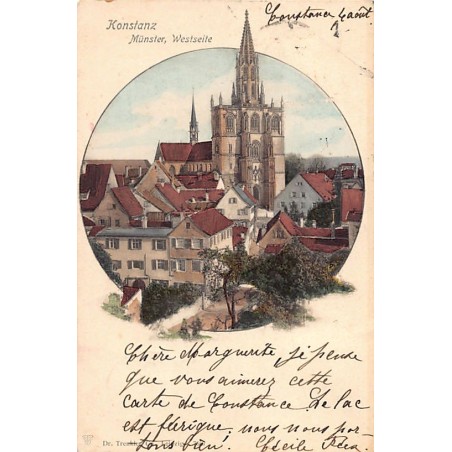 Konstanz
Münster, Westseite
Constance 4 août.
Chère Marguerite, je pense
que vous aimerez cette
carte de Constance. Le lac
est féérique, nous nous por
tons bien! Cécile
Dr. Trenkler